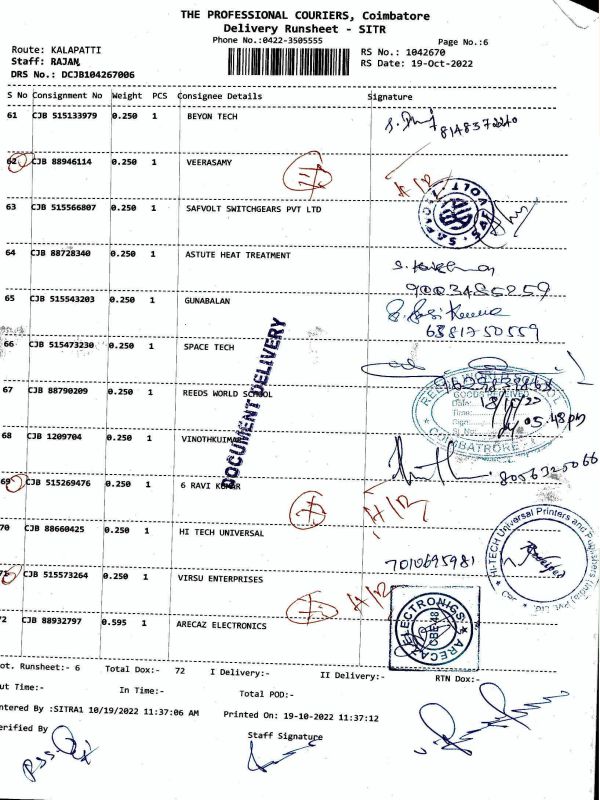 THE PROFESSIONAL COURIERS, Coimbatore
Delivery Runsheet - SITR
Phone No.:0422-3505555
Page No.:6
Route: KALAPATTI
RS No.: 1042670
Staff: RAJAN,
RS Date: 19-Oct-2022
DRS No.: DCJB104267006
S No Consignment No Weight PCS Consignee Details Signature
61 CJB 515133979 0.250 1 BEYON TECH
8148372240
62 CJB 88946114 0.250 1 VEERASAMY
63 CJB 515566807 0.250 1 SAFVOLT SWITCHGEARS PVT LTD
SAFVOLT
64 CJB 88728340 0.250 1 ASTUTE HEAT TREATMENT
9003485259
65 CJB 515543203 0.250 1 GUNABALAN
6381750559
66 CJB 515473230 0.250 1 SPACE TECH
DOCUMENT DELIVERY
67 CJB 88790209 0.250 1 REEDS WORLD SCHOOL
GOODS RECEIVED
Date:
Time:
Sign
COIMBATORE
68 CJB 1209704 0.250 1 VINOTHKUIMAR
8056320066
69 CJB 515269476 0.250 1 6 RAVI KUMAR
70 CJB 88660425 0.250 1 HI TECH UNIVERSAL
HI-TECH Universal Printers and Publishers (India) Pvt. Ltd.
7010695981
71 CJB 515573264 0.250 1 VIRSU ENTERPRISES
72 CJB 88932797 0.595 1 ARECAZ ELECTRONICS
ARECAZ ELECTRONICS
CBE-48
ot. Runsheet:- 6 Total Dox:- 72 I Delivery:- II Delivery:- RTN Dox:-
ut Time:- In Time:- Total POD:-
ntered By :SITRA1 10/19/2022 11:37:06 AM Printed On: 19-10-2022 11:37:12
erified By Staff Signature